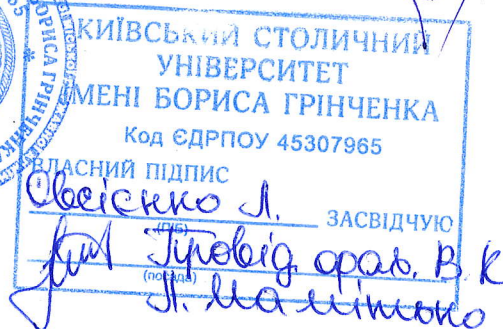 КИЇВСЬКИЙ СТОЛИЧНИЙ
УНІВЕРСИТЕТ
ІМЕНІ БОРИСА ГРІНЧЕНКА
Код ЄДРПОУ 45307965
ВЛАСНИЙ ПІДПИС
Овсієнко Л. ЗАСВІДЧУЮ
(ПІБ)
Провід. фах. В К
(посада)